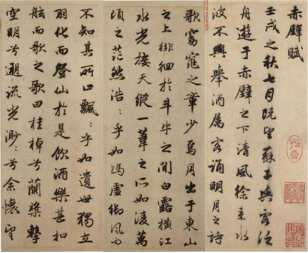 赤壁賦
壬戌之秋七月既望蘇子與客泛
舟遊于赤壁之下清風徐來水
波不興舉酒屬客誦明月之詩
歌窈窕之章少焉月出于東山
之上徘徊於斗牛之間白露橫江
水光接天縱一葦之所如凌萬
頃之茫然浩〻乎如馮虛御風而
不知其所止飄〻乎如遺世獨立
羽化而登仙於是飲酒樂甚扣
舷而歌之歌曰桂棹兮蘭槳擊
空明兮遡流光渺〻兮余懷